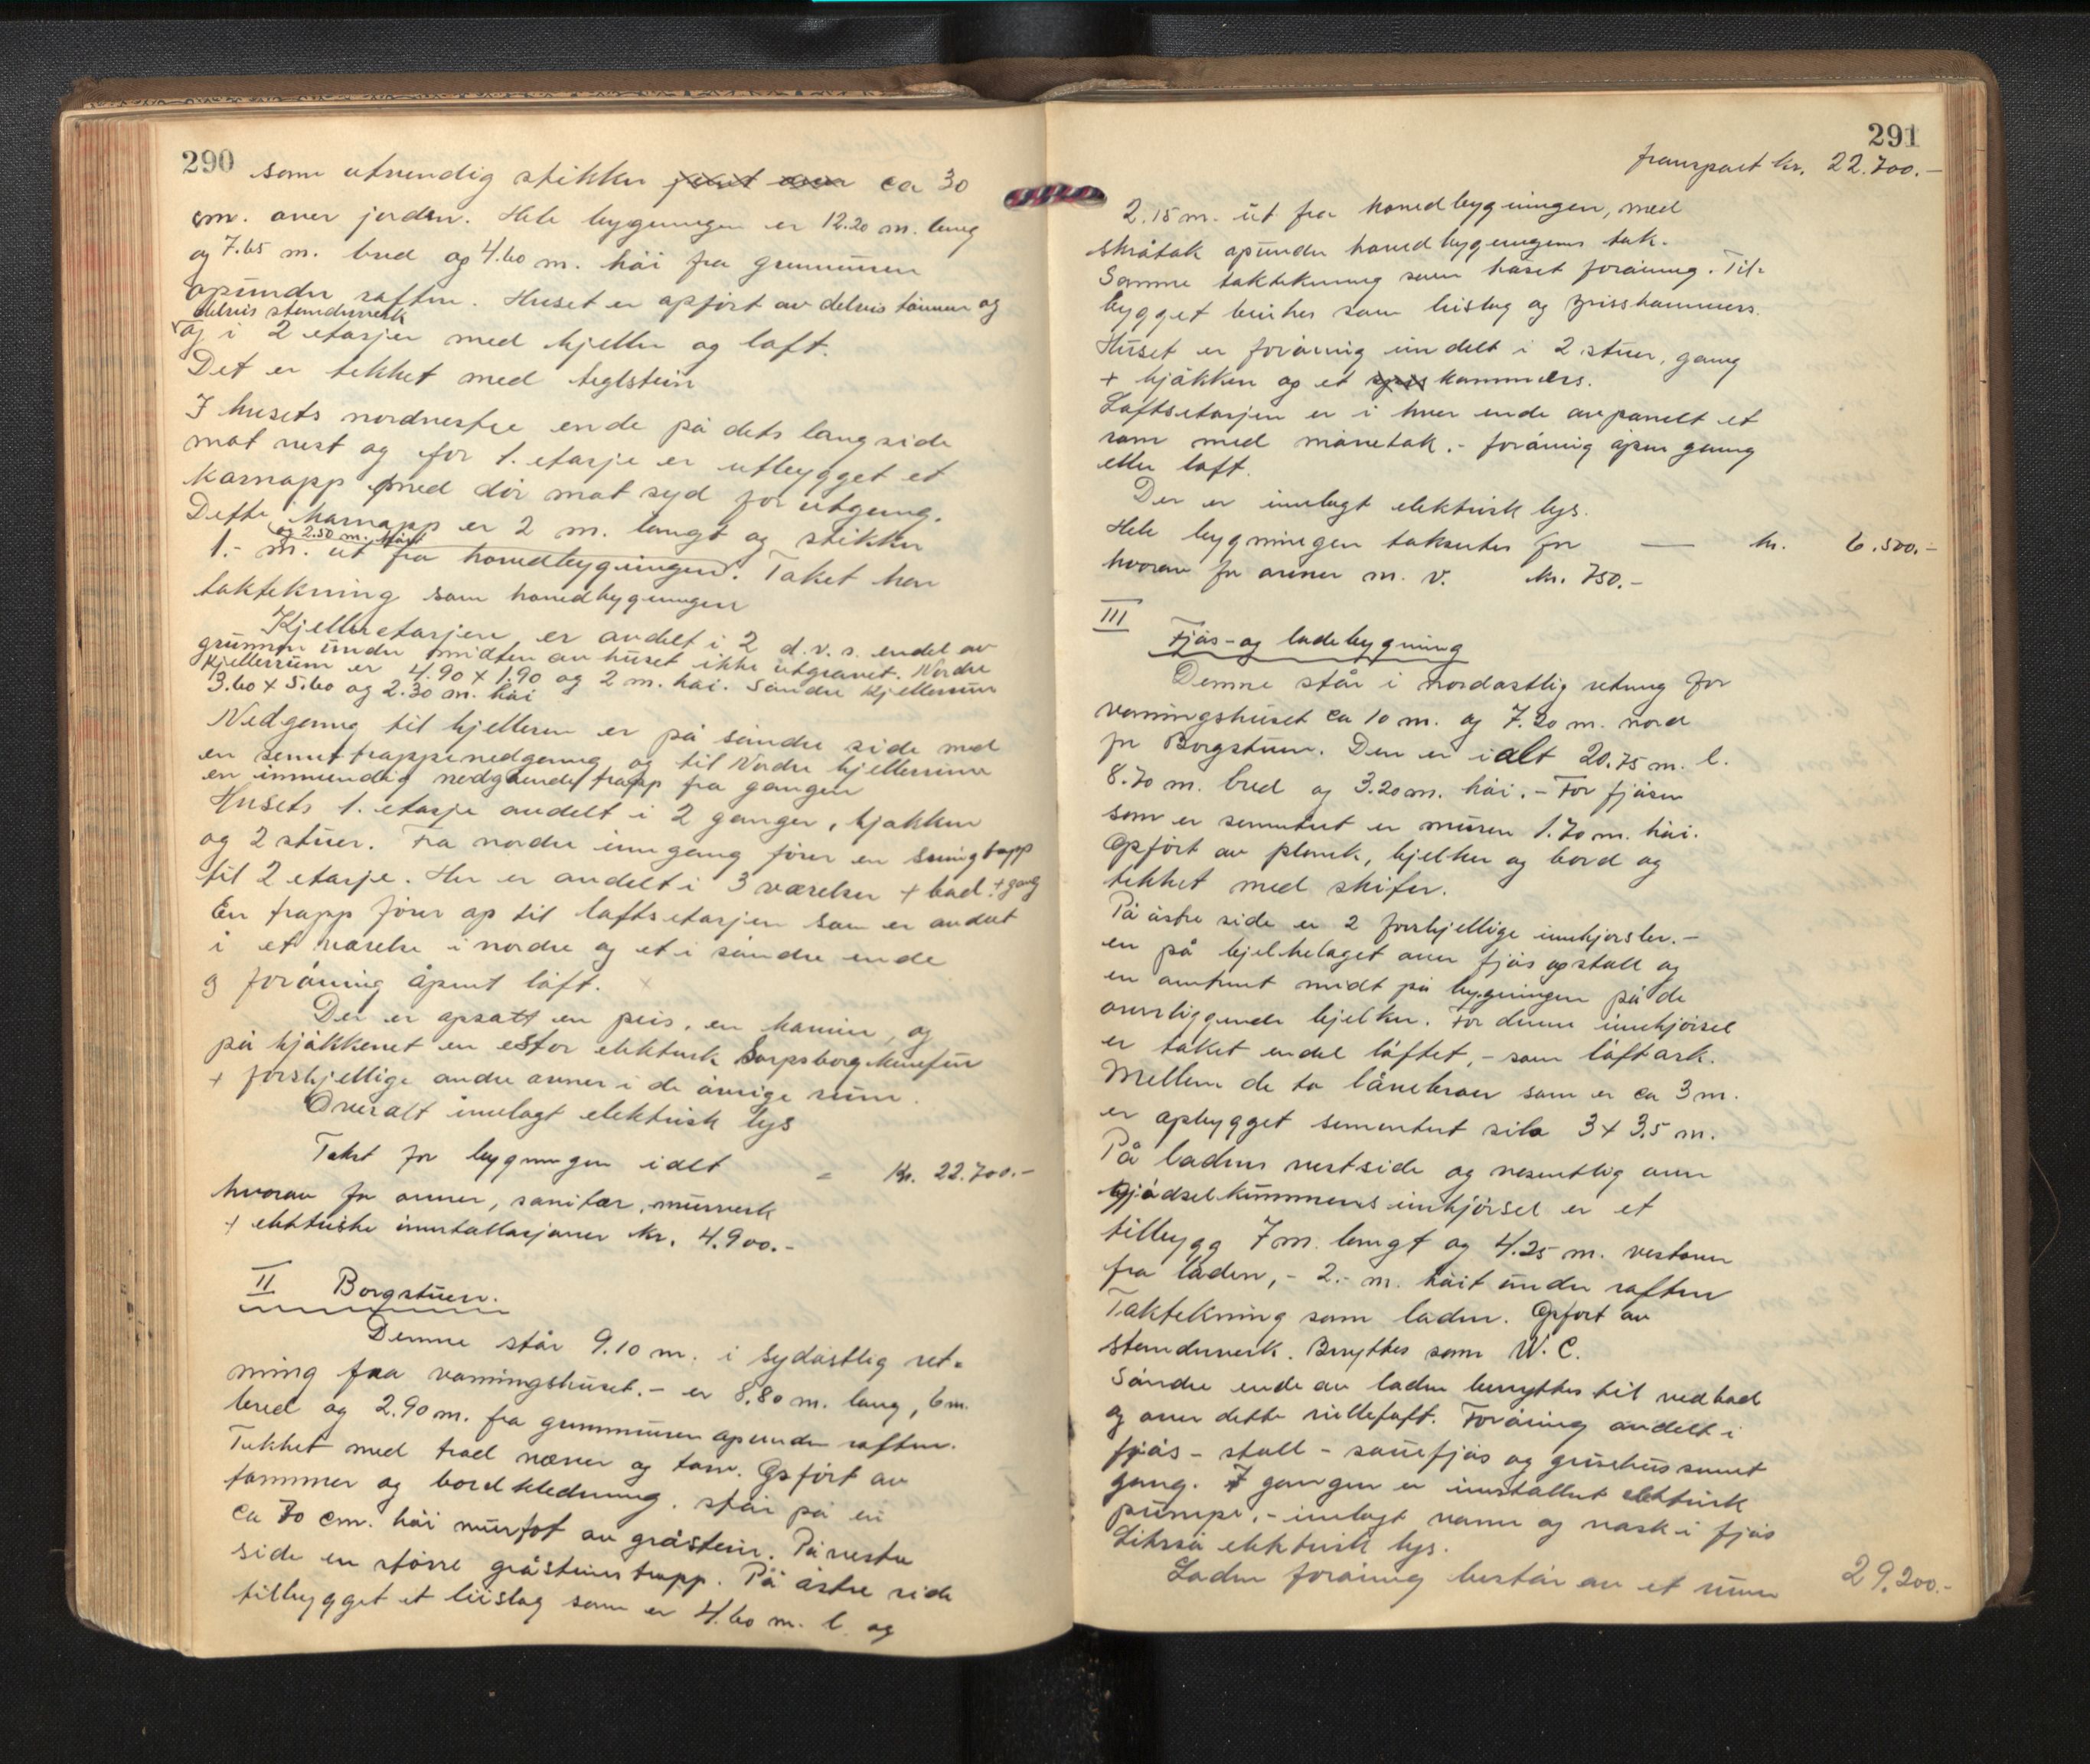 290
som utvendig stikker ca 30
cm. over jorden. Hele bygningen er 12.20 m. lang
og 7.65 m. bred og 4.60 m. höi fra grunnmuren
opunder raften. Huset er opfört av delvis tömmer og
delvis stenderverk
og i 2 etasjer med kjeller og loft.
Det er tekket med teglstein
I husets nordvestre ende på dets langside
mot vest og for 1. etasje er utbygget et
karnapp med dör mot syd for utgang.
Dette karnapp er 2 m. langt og stikker
og 2.50 m. höit
1.- m. ut fra hovedbygningen. Taket har
taktekning som hovedbygningen
Kjelleretasjen er avdelt i 2 d.v.s. endel av
grunnen under midten av huset ikke utgravet. Nordre
kjellerrum er 4.90 x 1.90 og 2 m. höi. Söndre kjellerrum
3.60 x 5.60 og 2.30 m. höi
Nedgang til kjelleren er på söndre side med
en sementtrappenedgang og til Nordre kjellerrum
en innvendig nedgående trapp fra gangen
Husets 1. etasje avdelt i 2 ganger, kjökken
og 2 stuer. Fra nordre inngang förer en svingtrapp
til 2 etasje. Her er avdelt i 3 værelser + bad + gang
En trapp förer op til loftsetasjen som er avdelt
i et værelse i nordre og et i söndre ende
og forövrig åpent loft.
Der er opsatt en peis, en kamin, og
på kjökkenet en stor elektrisk Sarpsborg komfur
+ forskjellige andre ovner i de övrige rum.
Overalt innlagt elektrisk lys
Takst for bygningen ialt = Kr. 22.700.-
hvorav for ovner, sanitær, murverk
+ elektriske innstallasjoner kr. 4.900.-
II Borgstuen.
Denne står 9.10 m. i sydöstlig ret-
ning fra våningshuset. - er 8.80 m. lang, 6 m.
bred og 2.90 m. fra grunnmuren opunder raften.
Tekket med trod næver og torv. Opfört av
tømmer og bordkledning. står på en
ca 70 cm. höi murfot av gråstein. På vestre
side en större gråsteinstrapp. På östre side
tilbygget et bislag som er 4.60 m. l. og
291
transport kr. 22.700.-
2.15 m. ut fra hovedbygningen, med
skråtak opunder hovedbygningens tak.
Samme taktekning som huset forövrig. Til-
bygget benyttes som bislag og spisskammers.
Huset er forövrig inndelt i 2 stuer, gang
+ kjökken og et kammers.
Loftsetasjen er i hver ende avpanelt et
rom med mönetak. - forövrig åpen gang
eller loft.
Der er innlagt elektrisk lys.
Hele bygningen takseres for — kr. 6.500.-
hvorav for ovner m. v. kr. 750.-
III
Fjös- og ladebygning
Denne står i nordöstlig retning for
våningshuset ca 10 m. og 7.20 m. nord
for Borgstuen. Den er ialt 20.75 m. l.
8.70 m. bred og 3.20 m. höi. - For fjösen
som er sementert er muren 1.70 m. höi.
Opfört av plank, bjelker og bord og
tekket med skifer.
På östre side er 2 forskjellige innkjörsler. -
en på bjelkelaget over fjös og stall og
en omtrent midt på bygningen på de
overliggende bjelker. For denne innkjörsel
er taket endel löftet, - som löftark.
Mellem de to låvebroer som er ca 3 m.
er opbygget sementert silo 3 x 3.5 m.
På ladens vestside og vesentlig over
gjödselkummens innkjörsel er et
tilbygg 7 m. langt og 4.25 m. vestover
fra laden, - 2.- m. höit under raften
Taktekning som laden. Opfört av
stenderverk. Benyttes som W. C.
Söndre ende av laden benyttes til vedbod
og over dette rulleloft. Forövrig avdelt i
fjös - stall - sauefjös og grisehus samt
gang. I gangen er innstallert elektrisk
pumpe, - innlagt vann og vask i fjös
Likeså elektrisk lys.
Laden forövrig består av et rum
29.200.-